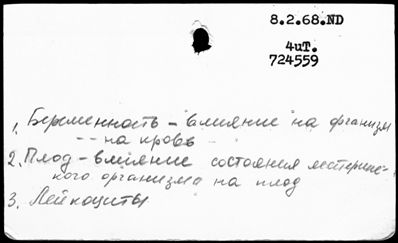 8.2.68.ND
4иТ.
724559
1. Беременность – влияние на организм
-- на кровь
2. Плод – влияние состояния материнс-
кого организма на плод
3. Лейкоциты